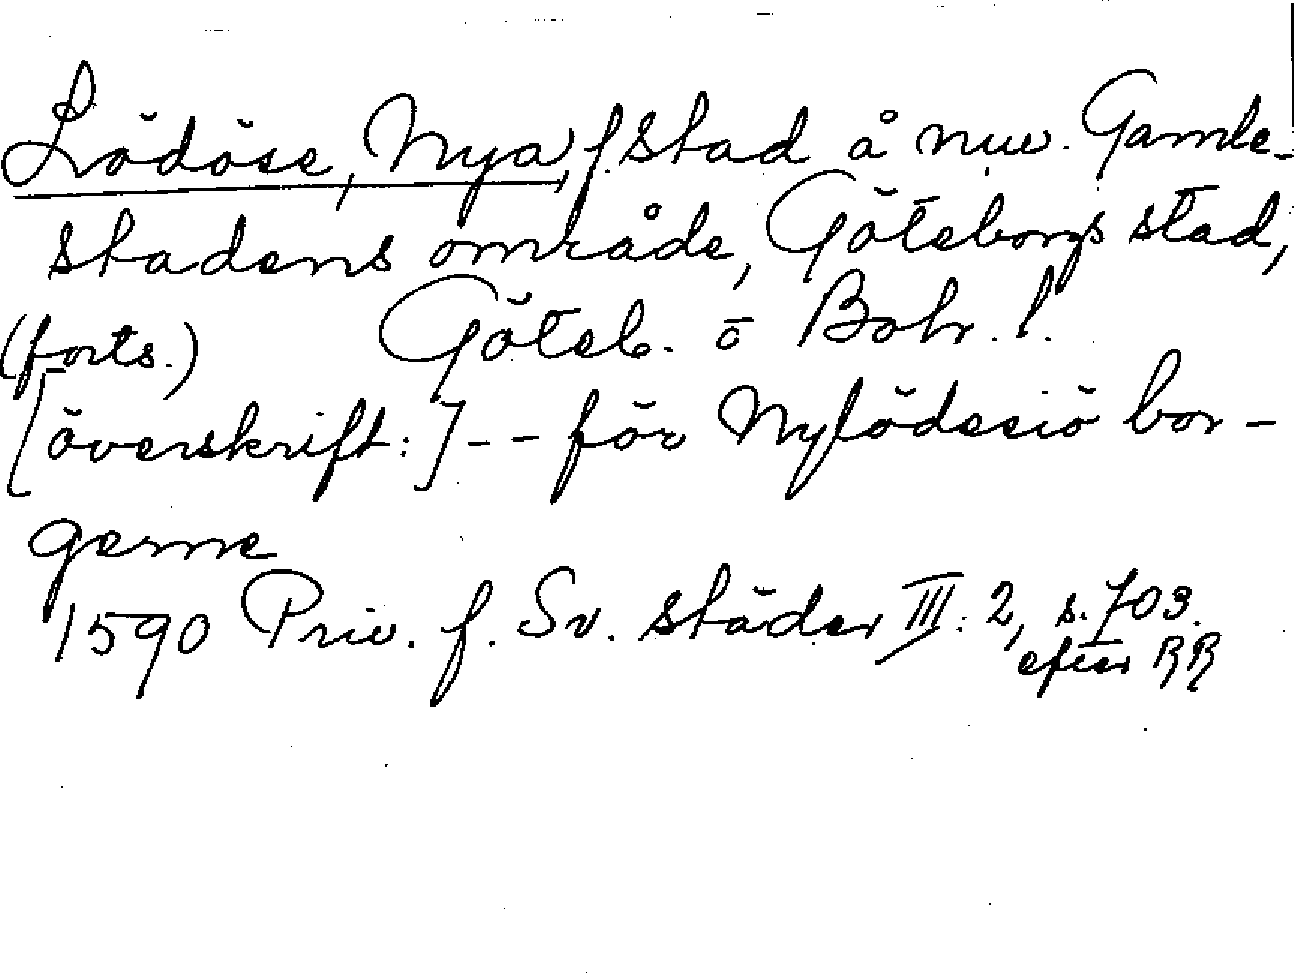 Lödöse, Nya, f. stad å nuv. Gamle-
stadens område, Göteborgs stad,
(forts.) Göteb. o Boh. l.
[överskrift:] -- för Nylödesiö bor-
gerne
1590 Priv. f. Sv. städer III: 2, s. 703.
efter RR